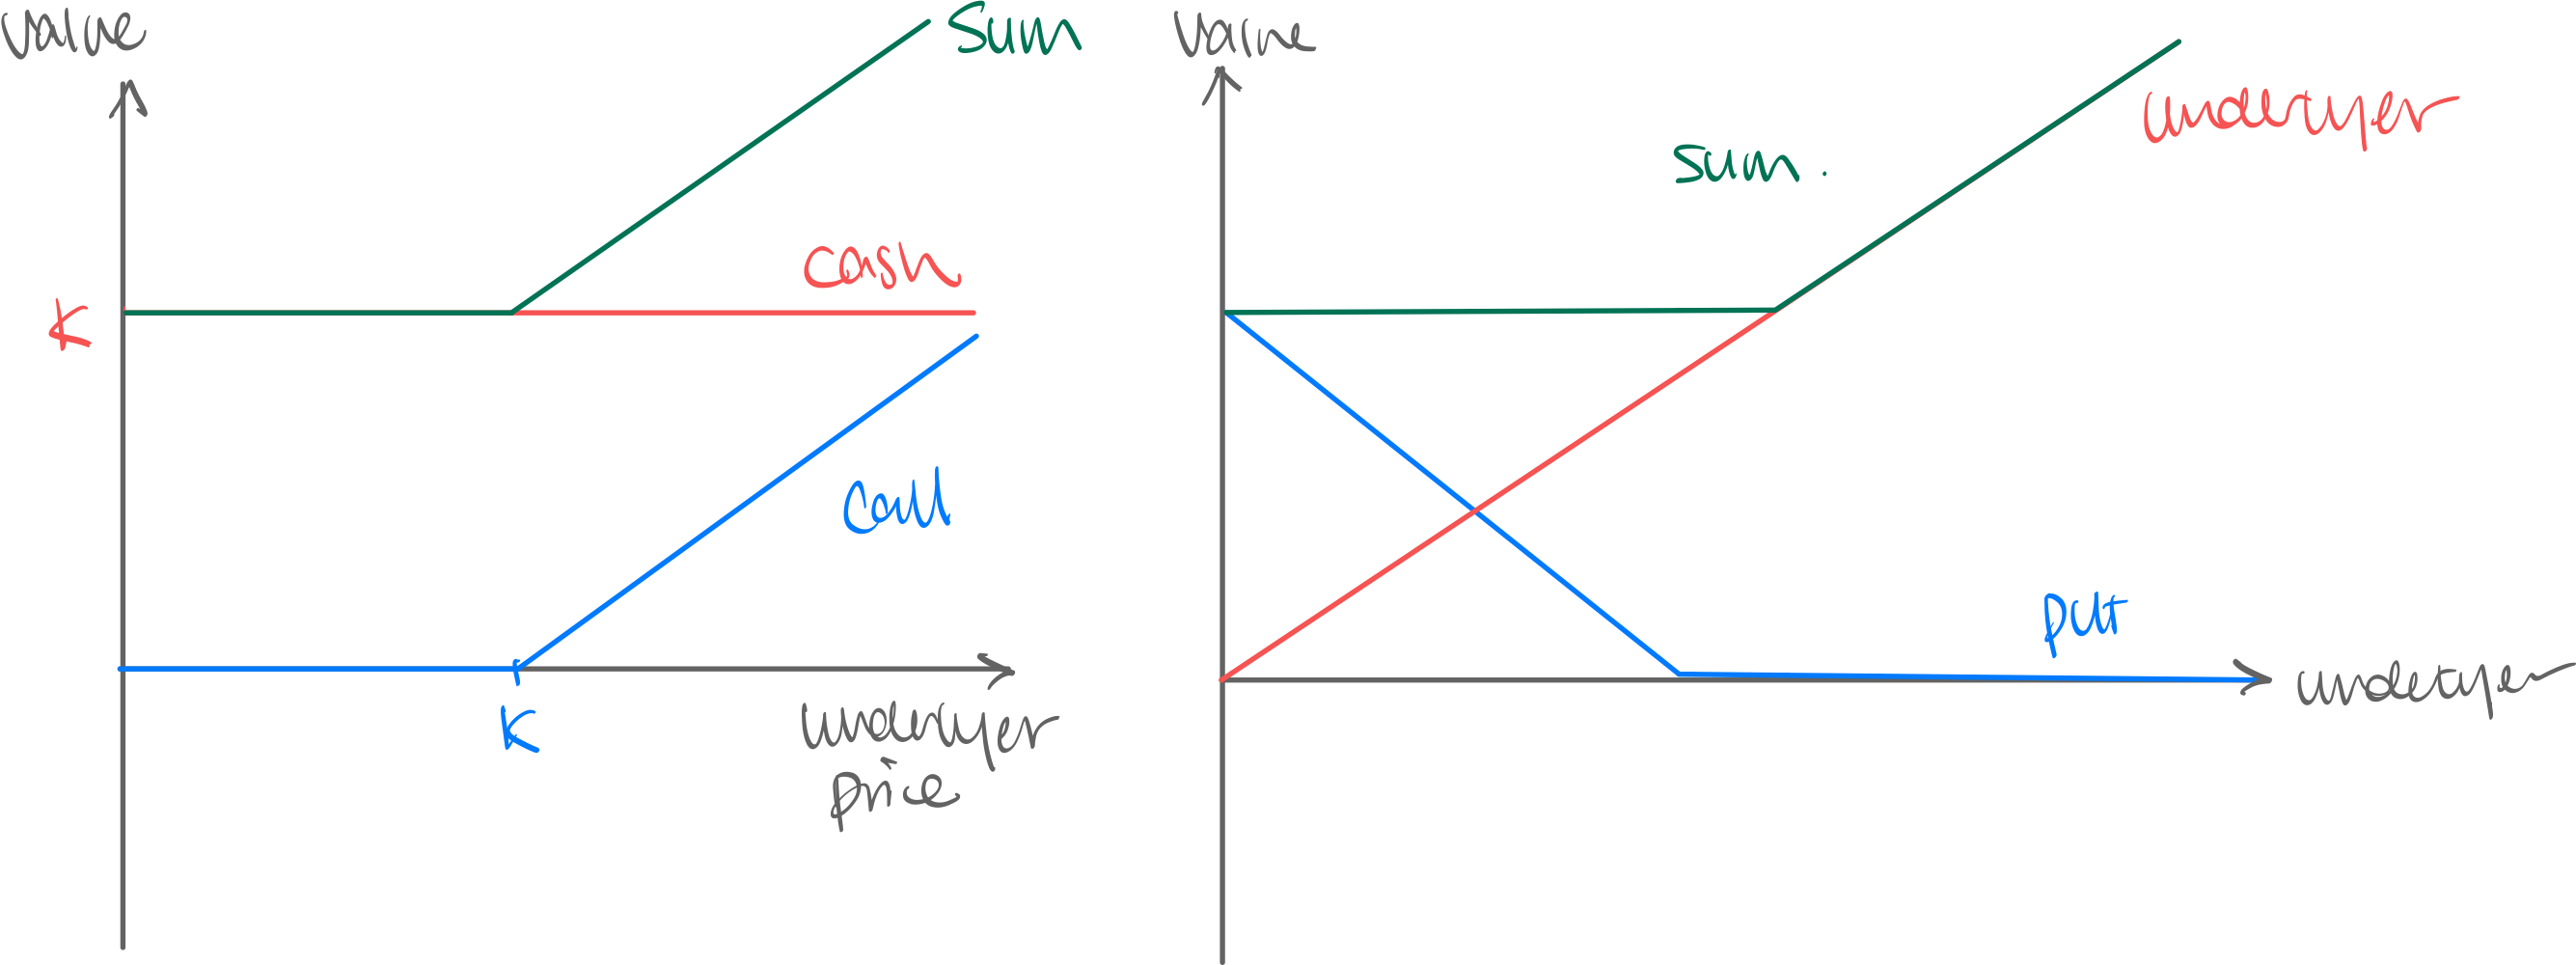 value
sum
K
cash
call
K
underlyer
price
value
underlyer
sum.
put
underlyer